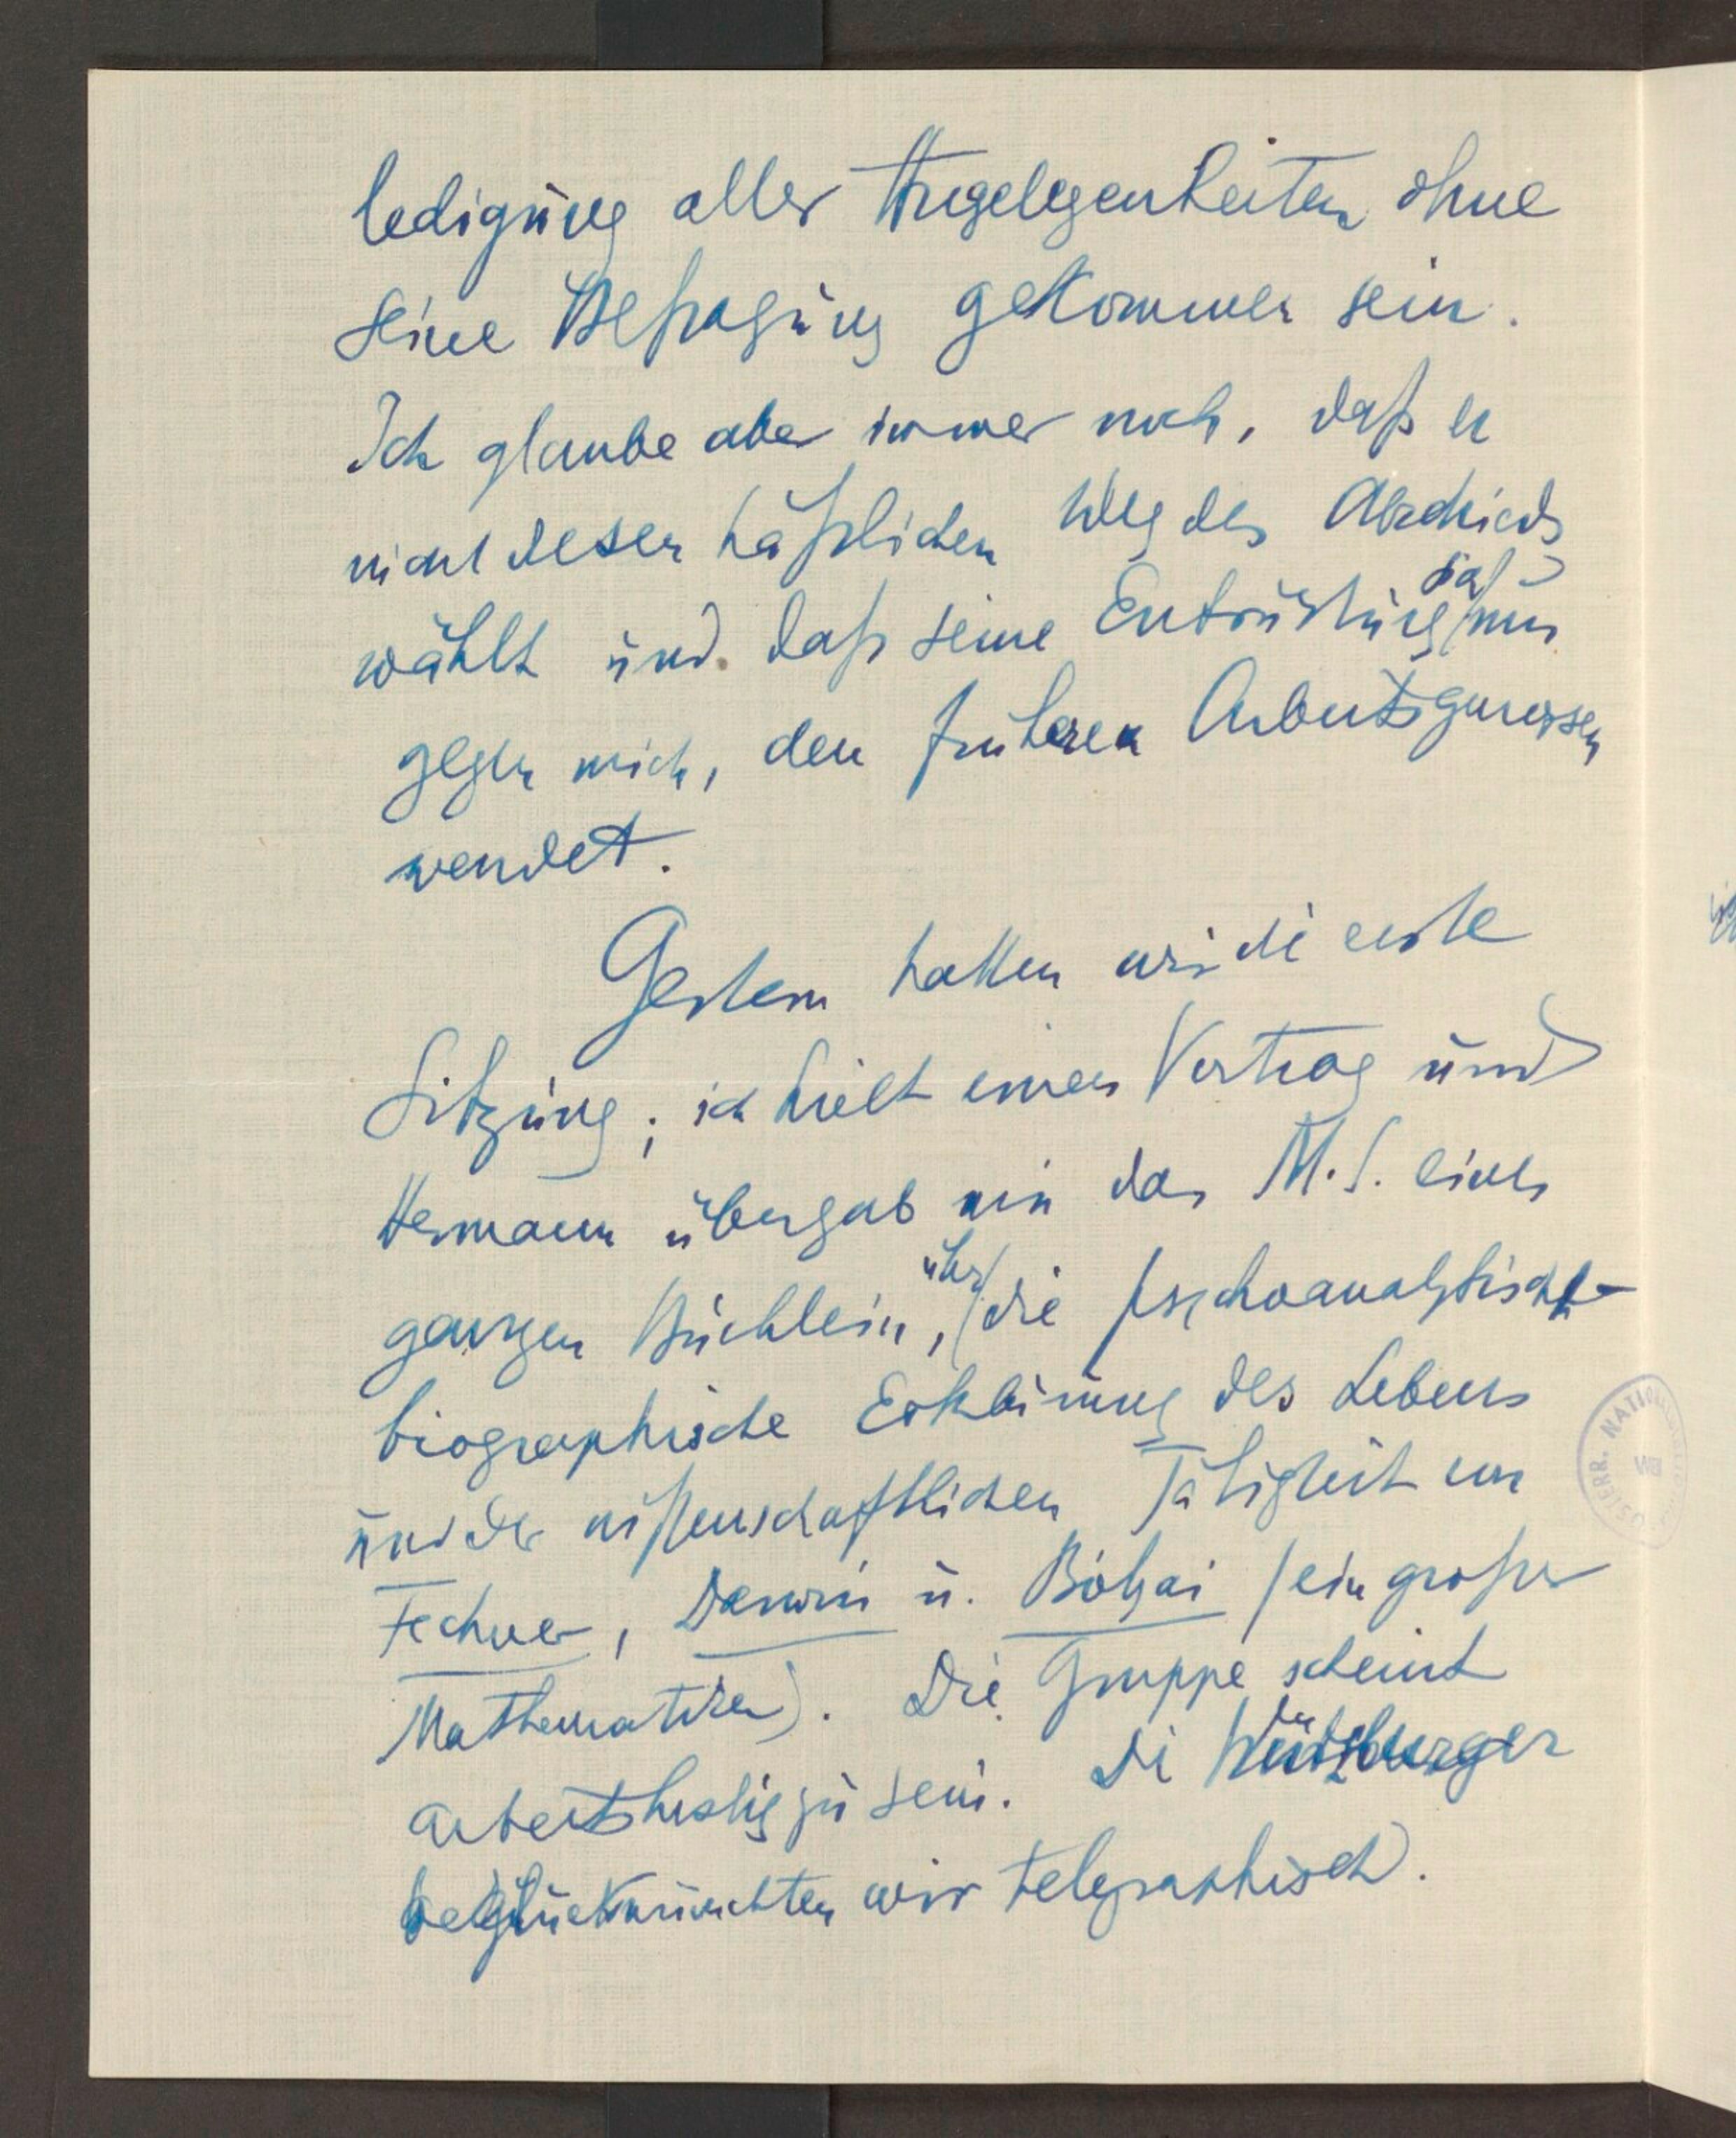 ledigung aller Angelegenheiten ohne
seine Befragung gekommen sein.
Ich glaube aber immer noch, daß er
nicht diesen häßlichen Weg des Abschieds
wählt und daß seine Entrüstung sich nur
gegen mich, den früheren Arbeitsgenossen
wendet.
Gestern hatten wir die erste
Sitzung; ich hielt einen Vortrag und
Hermann übergab mir das M.S. eines
ganzen Büchlein, über die psychoanalytisch-
biographische Erklärung des Lebens
und der wißenschaftlichen Tätigkeit von
Fechner, Darwin u. Bólyai (ein großer
Mathematiker). Die Gruppe scheint
arbeitslustig zu sein. Die Würzburger
beglückwünschten wir telegraphisch.
ÖSTERR. NATIONAL